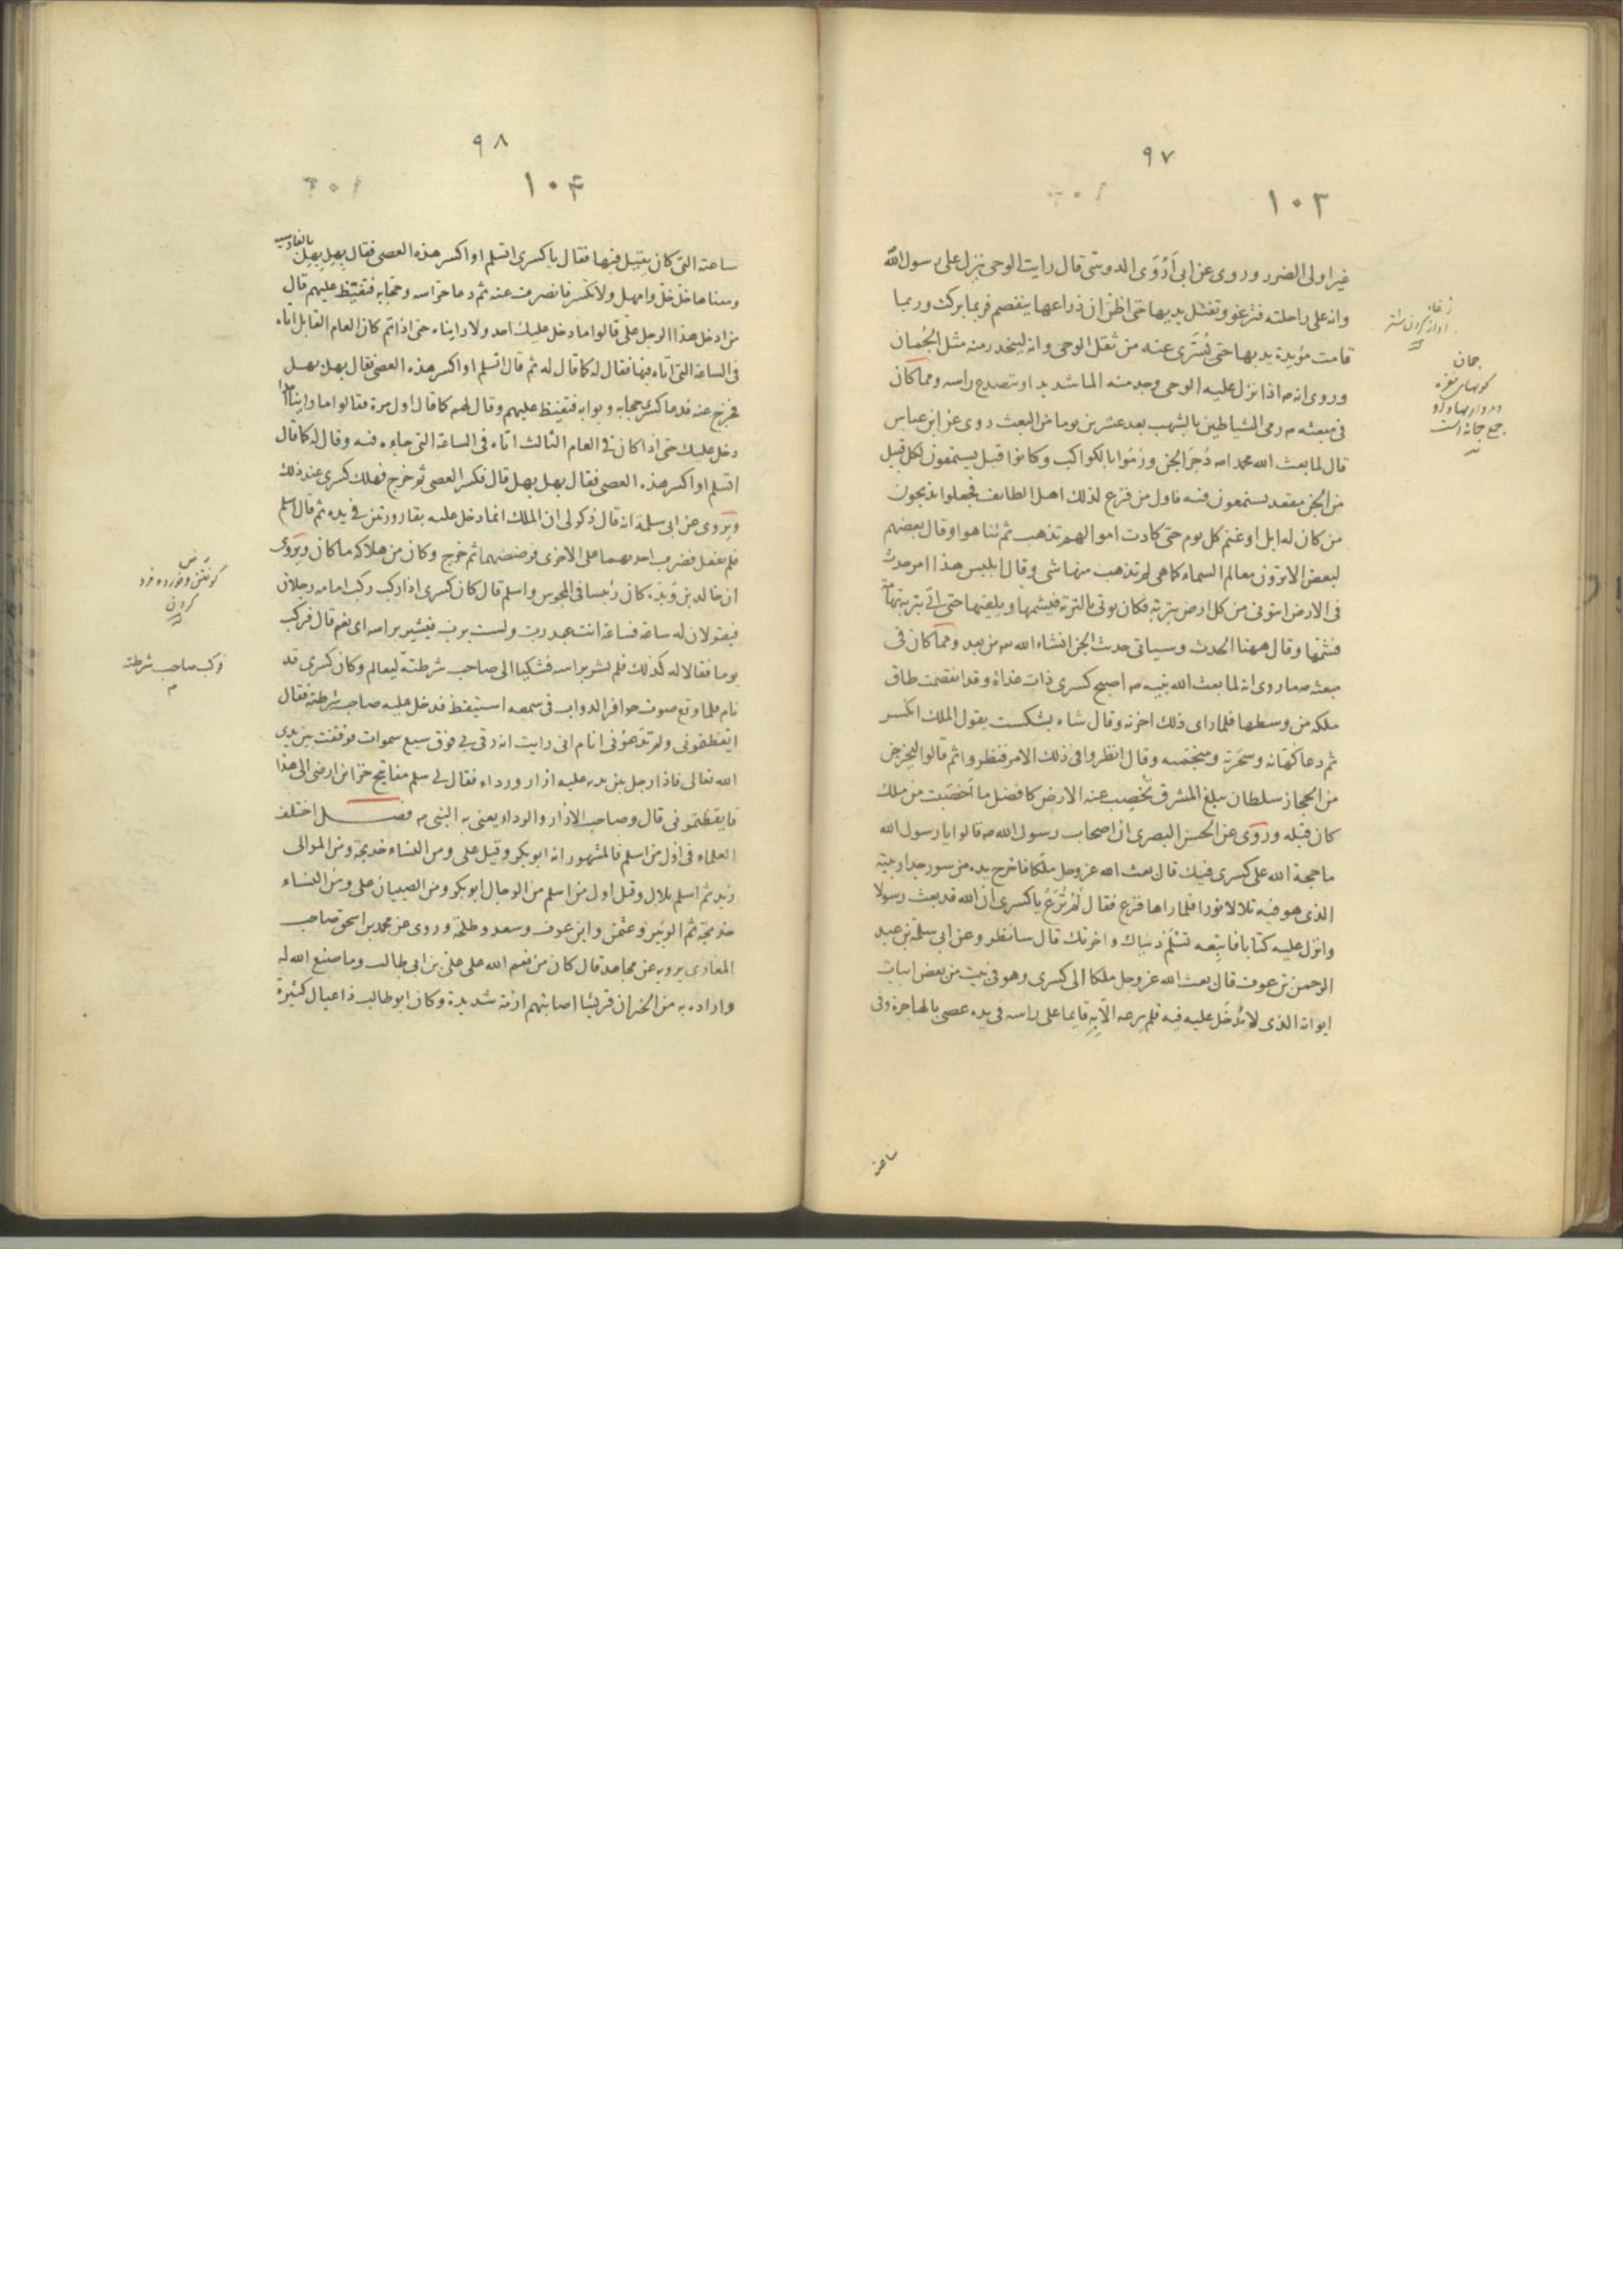 ۹۷
۱۰۳
غیر اولی الضرر وروی عن ابی اَرْوَی الدوسی قال رایت الوحی ینزل علی رسول الله
وانه علی راحلته فترغو وتفتل یدیها حتی اظن ان ذراعها ینفصم فربما برکت وربما
قامت مؤیدة یدیها حتی یُسَرّی عنه من ثقل الوحی وانه لیتحدر منه مثل الجُمان
وروی انه م اذا نزل علیه الوحی وجد منه الما شدیدا وتصدع راسه ومما کان
فی مبعثه م رمی الشیاطین بالشهب بعد عشرین یوما من المبعث روی عن ابن عباس
قال لما بعث الله محمدا م دُحِرَ الجن ورُمُوا بالکواکب وکانوا قبل یستمعون لکل قبیل
من الجن مقعد یستمعون فیه فاول من فزع لذلک اهل الطایف فجعلوا یذبحون
من کان له ابل او غنم کل یوم حتی کادت اموالهم تذهب ثم تناهوا وقال بعضهم
لبعض الا ترون معالم السماء کما هی لم تذهب منها شی وقال ابلیس هذا امر حدث
فی الارض ایتونی من کل ارض بتربة فکان یوتی بالتربة فیشمها ویلقیها حتی اُتی بتربة تهامة
فشمّها وقال ههنا الحدث وسیاتی حدیث الجن انشاء الله من بعد ومما کان فی
مبعثه م ما روی انه لما بعث الله نبیه م اصبح کسری ذات غداة وقد انقصمت طاق
ملکه من وسطها فلما رای ذلک احزنه وقال شاه بشکست یقول الملک انکسر
ثم دعا کهّانه وسَحَرَته ومنجّمیه وقال انظروا فی ذلک الامر فنظروا ثم قالوا لیخرجن
من الحجاز سلطان یبلغ المشرق تُخصِب عنه الارض کافضل ما اَخصَبت من ملک
کان قبله وروَی عن الحسن البصری ان اصحاب رسول الله م قالوا یا رسول الله
ما حجة الله علی کسری فیک قال بعث الله عز وجل ملکا فاخرج یده من سور جدار بیته
الذی هو فیه تلالا نورا فلما راها فزع فقال لَمْ تُرَعْ یا کسری ان الله قد بعث رسولا
وانزل علیه کتابا فاتبعه تَسْلَم دنیاک واخرتک قال سانظر وعن ابی سلمة بن عبد
الرحمن بن عوف قال بعث الله عز وجل ملکا الی کسری وهو فی بیت من بعض ابیات
ایوانه الذی لا یُدخَل علیه فیه فلم یرعه الّا به قایما علی راسه فی یده عصی بالهاجرة فی
ساعته
جمان
۹۸
۱۰۴
ساعته التی کان یقیل فیها فقال یا کسری اتسلم او اکسر هذه العصی فقال بهل بهل
ومعناها خلّ خلّ وامهل ولا تکسر فانصرف عنه ثم دعا حرّاسه وحجابه فتغیّظ علیهم قال
من ادخل هذا الرجل علیّ قالوا ما دخل علیک احد ولا رایناه حتی اذا تم کان العام القابل اتاه
فی الساعة التی اتاه فیها فقال له کما قال له ثم قال اتسلم او اکسر هذه العصی فقال بهل بهل
فخرج عنه فدعا کسری حجابه وبوابه فتغیظ علیهم وقال لهم کما قال اول مرة فقالوا ما راینا احدا
دخل علیک حتی اذا کان فی العام الثالث اتاه فی الساعة التی جاءه فیه وقال له کما قال
اتسلم او اکسر هذه العصی فقال بهل بهل قال فکسر العصی ثم خرج فهلک کسری عند ذلک
ویَروَی عن ابی سلمة انه قال ذکر لی ان الملک انما دخل علیه بقارورتین فی یده ثم قال اسلم
فلم یفعل فضرب احدیهما علی الاخری فرضضهما ثم خرج وکان من هلاکه ما کان ویَروَی
ان خالد بن وُبَدَه کان رئیسا فی المجوس واسلم قال کان کسری اذا رکب رکب امامه رجلان
فیقولان له ساعة فساعة انت عبد ربٍ ولست برب فیشیر براسه ای نعم قال فرکب
یوما فقالا له کذلک فلم یشر براسه فشکیا الی صاحب شرطته لیعاتبه وکان کسری قد
نام فلما وقع صوت حوافر الدواب فی سمعه استیقظ فدخل علیه صاحب شرطته فقال
ایقظتمونی ولم تدَعوْنی انام انی رایت انه رقی بی فوق سبع سموات فوقفت بین یدی
الله تعالی فاذا رجل بین یدیه علیه ازار ورداء فقال لی سلم مفاتیح خزاین ارضی الی هذا
فایقظتمونی قال وصاحب الازار والرداء یعنی به النبی م فصل اختلف
العلماء فی اول من اسلم فالمشهور انه ابوبکر وقیل علی ومن النساء خدیجة ومن الموالی
زید ثم اسلم بلال وقیل اول من اسلم من الرجال ابوبکر ومن الصبیان علی ومن النساء
خدیجة ثم الزبیر وعثمن وابن عوف وسعد وطلحة وروی عن محمد بن اسحق صاحب
المغازی یرویه عن مجاهد قال کان من نعم الله علی علیّ بن ابی طالب وما صنع الله له
واراده به من الخیر ان قریشا اصابتهم ازمة شدیدة وکان ابو طالب ذا عیال کثیرة
رض
کوفتن وخورده خورد
کردن
فرکب صاحب شرطته
م